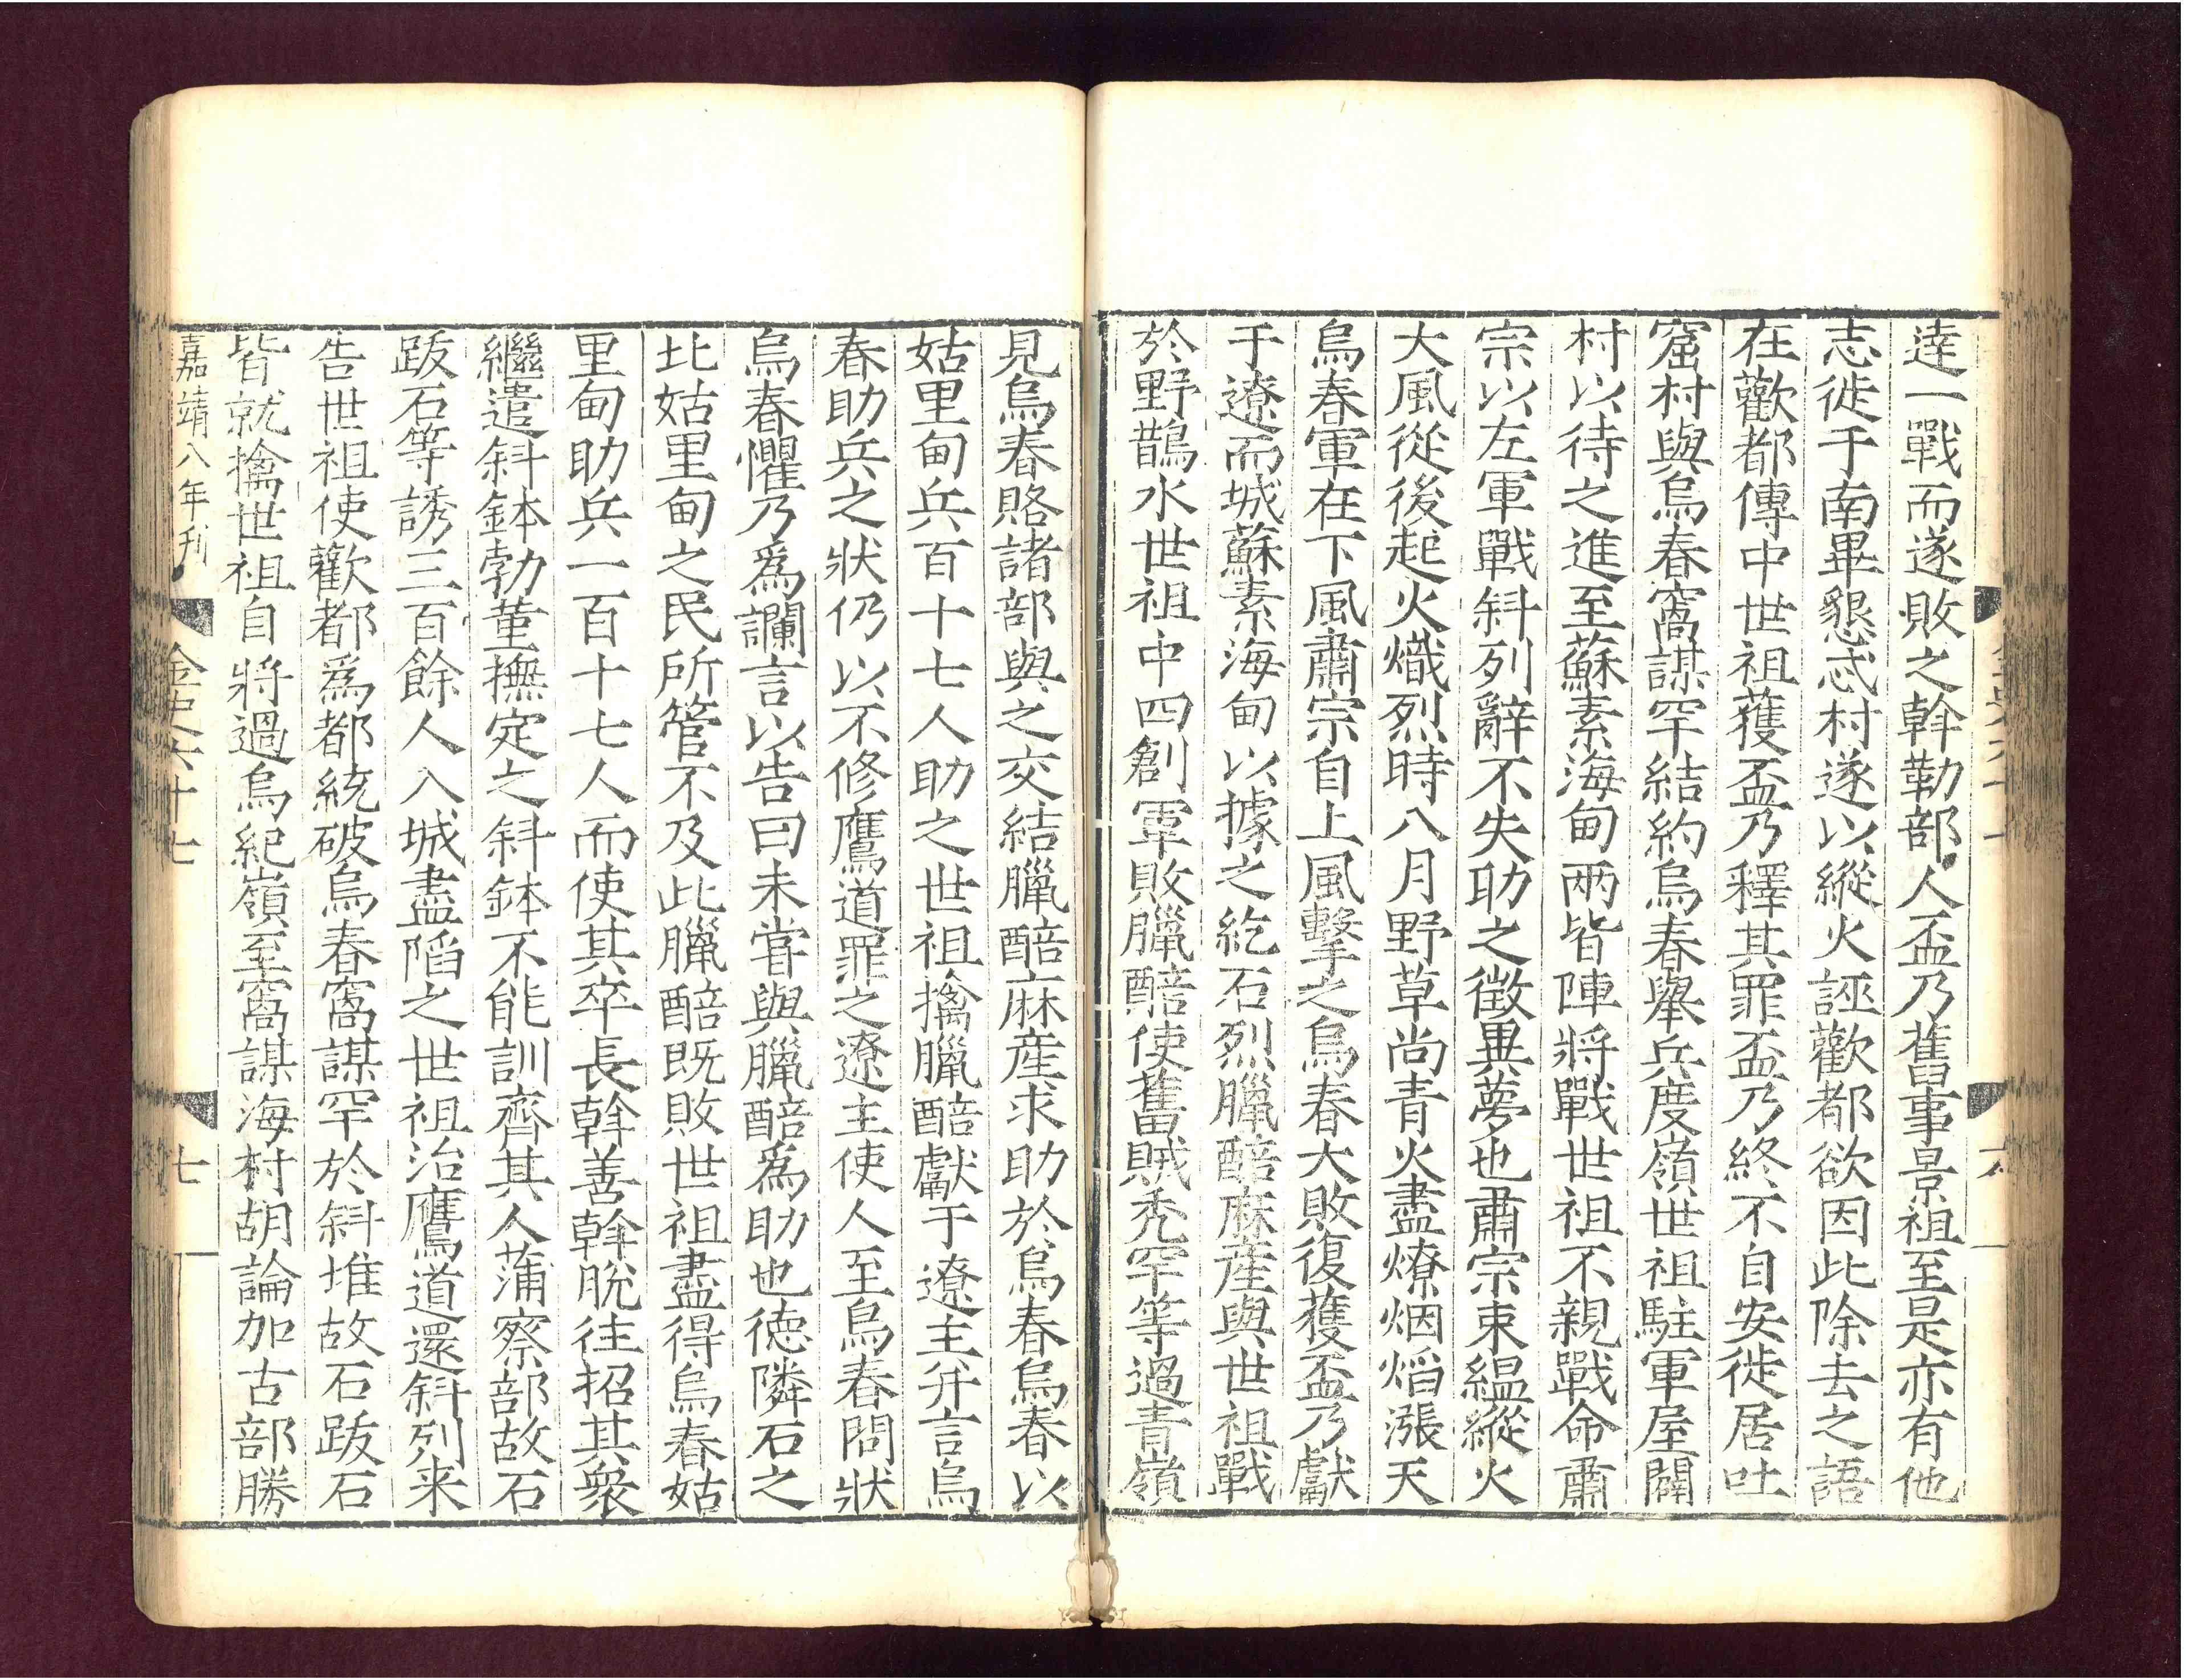 逹一戰而遂敗之斡勒部人盃乃舊事景祖至是亦有他
志徙于南畢懇忒村遂以縱火誣歡都欲因此除去之語
在歡都傳中世祖獲盃乃釋其罪盃乃終不自安徙居吐
窟村與烏春窩謀罕結約烏春舉兵度嶺世祖駐軍屋闢
村以待之進至蘇素海甸兩皆陣將戰世祖不親戰命肅
宗以左軍戰斜列辭不失助之徵異夢也肅宗束緼縱火
大風從後起火熾烈時八月野草尚青火盡燎烟焰漲天
烏春軍在下風肅宗自上風擊之烏春大敗復獲盃乃獻
于遼而城蘇素海甸以據之紇石烈臘醅麻産與世祖戰
於野鵲水世祖中四創軍敗臘醅使舊賊禿罕等過青嶺
見烏春賂諸部與之交結臘醅麻産求助於烏春烏春以
姑里甸兵百十七人助之世祖擒臘醅獻于遼主并言烏
春助兵之狀仍以不修鷹道罪之遼主使人至烏春問狀
烏春懼乃爲讕言以告曰未甞與臘醅爲助也德隣石之
北姑里甸之民所管不及此臘醅既敗世祖盡得烏春姑
里甸助兵一百十七人而使其卒長斡善斡脫往招其衆
繼遣斜鉢勃菫撫定之斜鉢不能訓齊其人蒲察部故石
跋石等誘三百餘人入城盡陷之世祖治鷹道還斜列来
告世祖使歡都爲都統破烏春窩謀罕於斜堆故石跋石
皆就擒世祖自將過烏紀嶺至窩謀海村胡論加古部勝
嘉靖八年刊
金史六十七
七